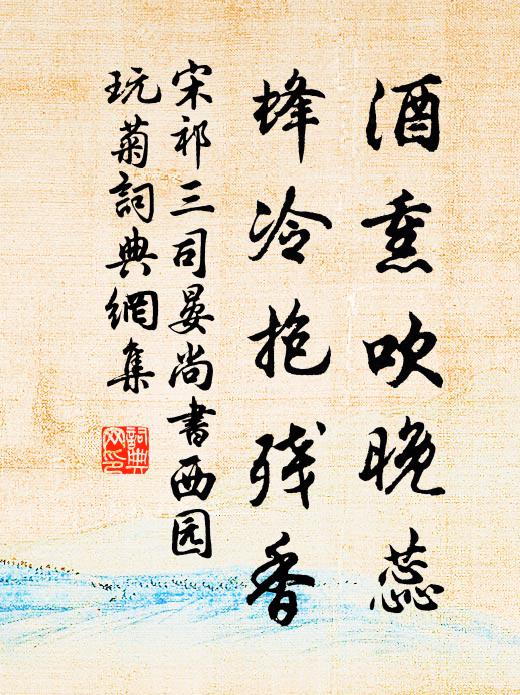 酒熏吹晚蕊
蜂冷抱残香
宋祁三司晏尚書西园
玩菊詞典網集
詞典网印